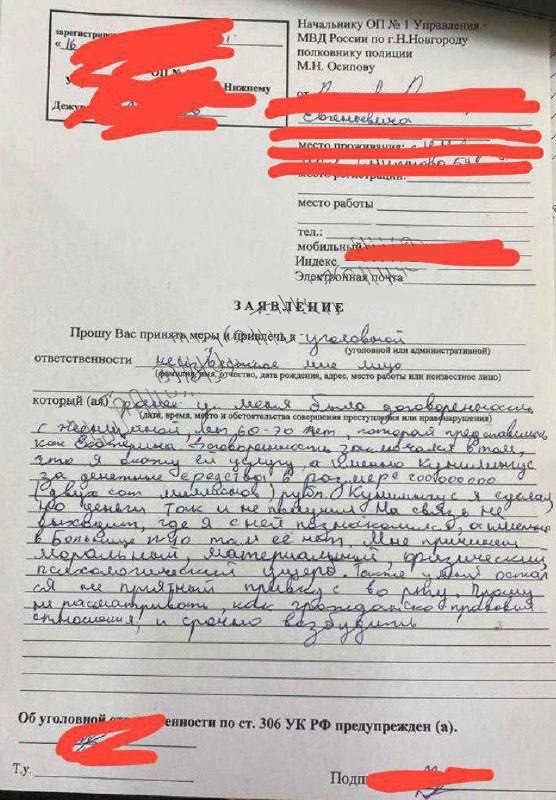 зарегистриро
« 16
ОП №
Нижнему
Дежу
Начальнику ОП № 1 Управления
МВД России по г.Н.Новгороду
полковнику полиции
М.Н. Осипову
от
Евгеньевича
место проживания:
место регистрации:
место работы
тел.:
мобильный
Индекс
Электронная почта
ЗАЯВЛЕНИЕ
Прошу Вас принять меры и привлечь к уголовной
(уголовной или административной)
ответственности неизвестное мне лицо
(фамилия, имя, отчество, дата рождения, адрес, место работы или неизвестное лицо)
который (ая) у меня была договоренность
(дата, время, место и обстоятельства совершения преступления или правонарушения)
с женщиной, лет 60-70 лет, которая представилась
как Екатерина. Договоренность заключалась в том,
что я окажу ей услугу, а именно Кунилингус
за денежные средства в размере 200000000
(двухсот миллионов) рубл. Кунилингус я сделал
но деньги так и не получил. На связь не
выходит, где я с ней познакомился, а именно
в Больнице №40 там её нет. Мне причинен
моральный, материальный, физический,
психологический ущерб. Также у меня остал
ся не приятный привкус во рту. Прошу
не рассматривать, как гражданско правовые
отношения, и срочно возбудить
Об уголовной ответственности по ст. 306 УК РФ предупрежден (а).
Т.у.
Подп